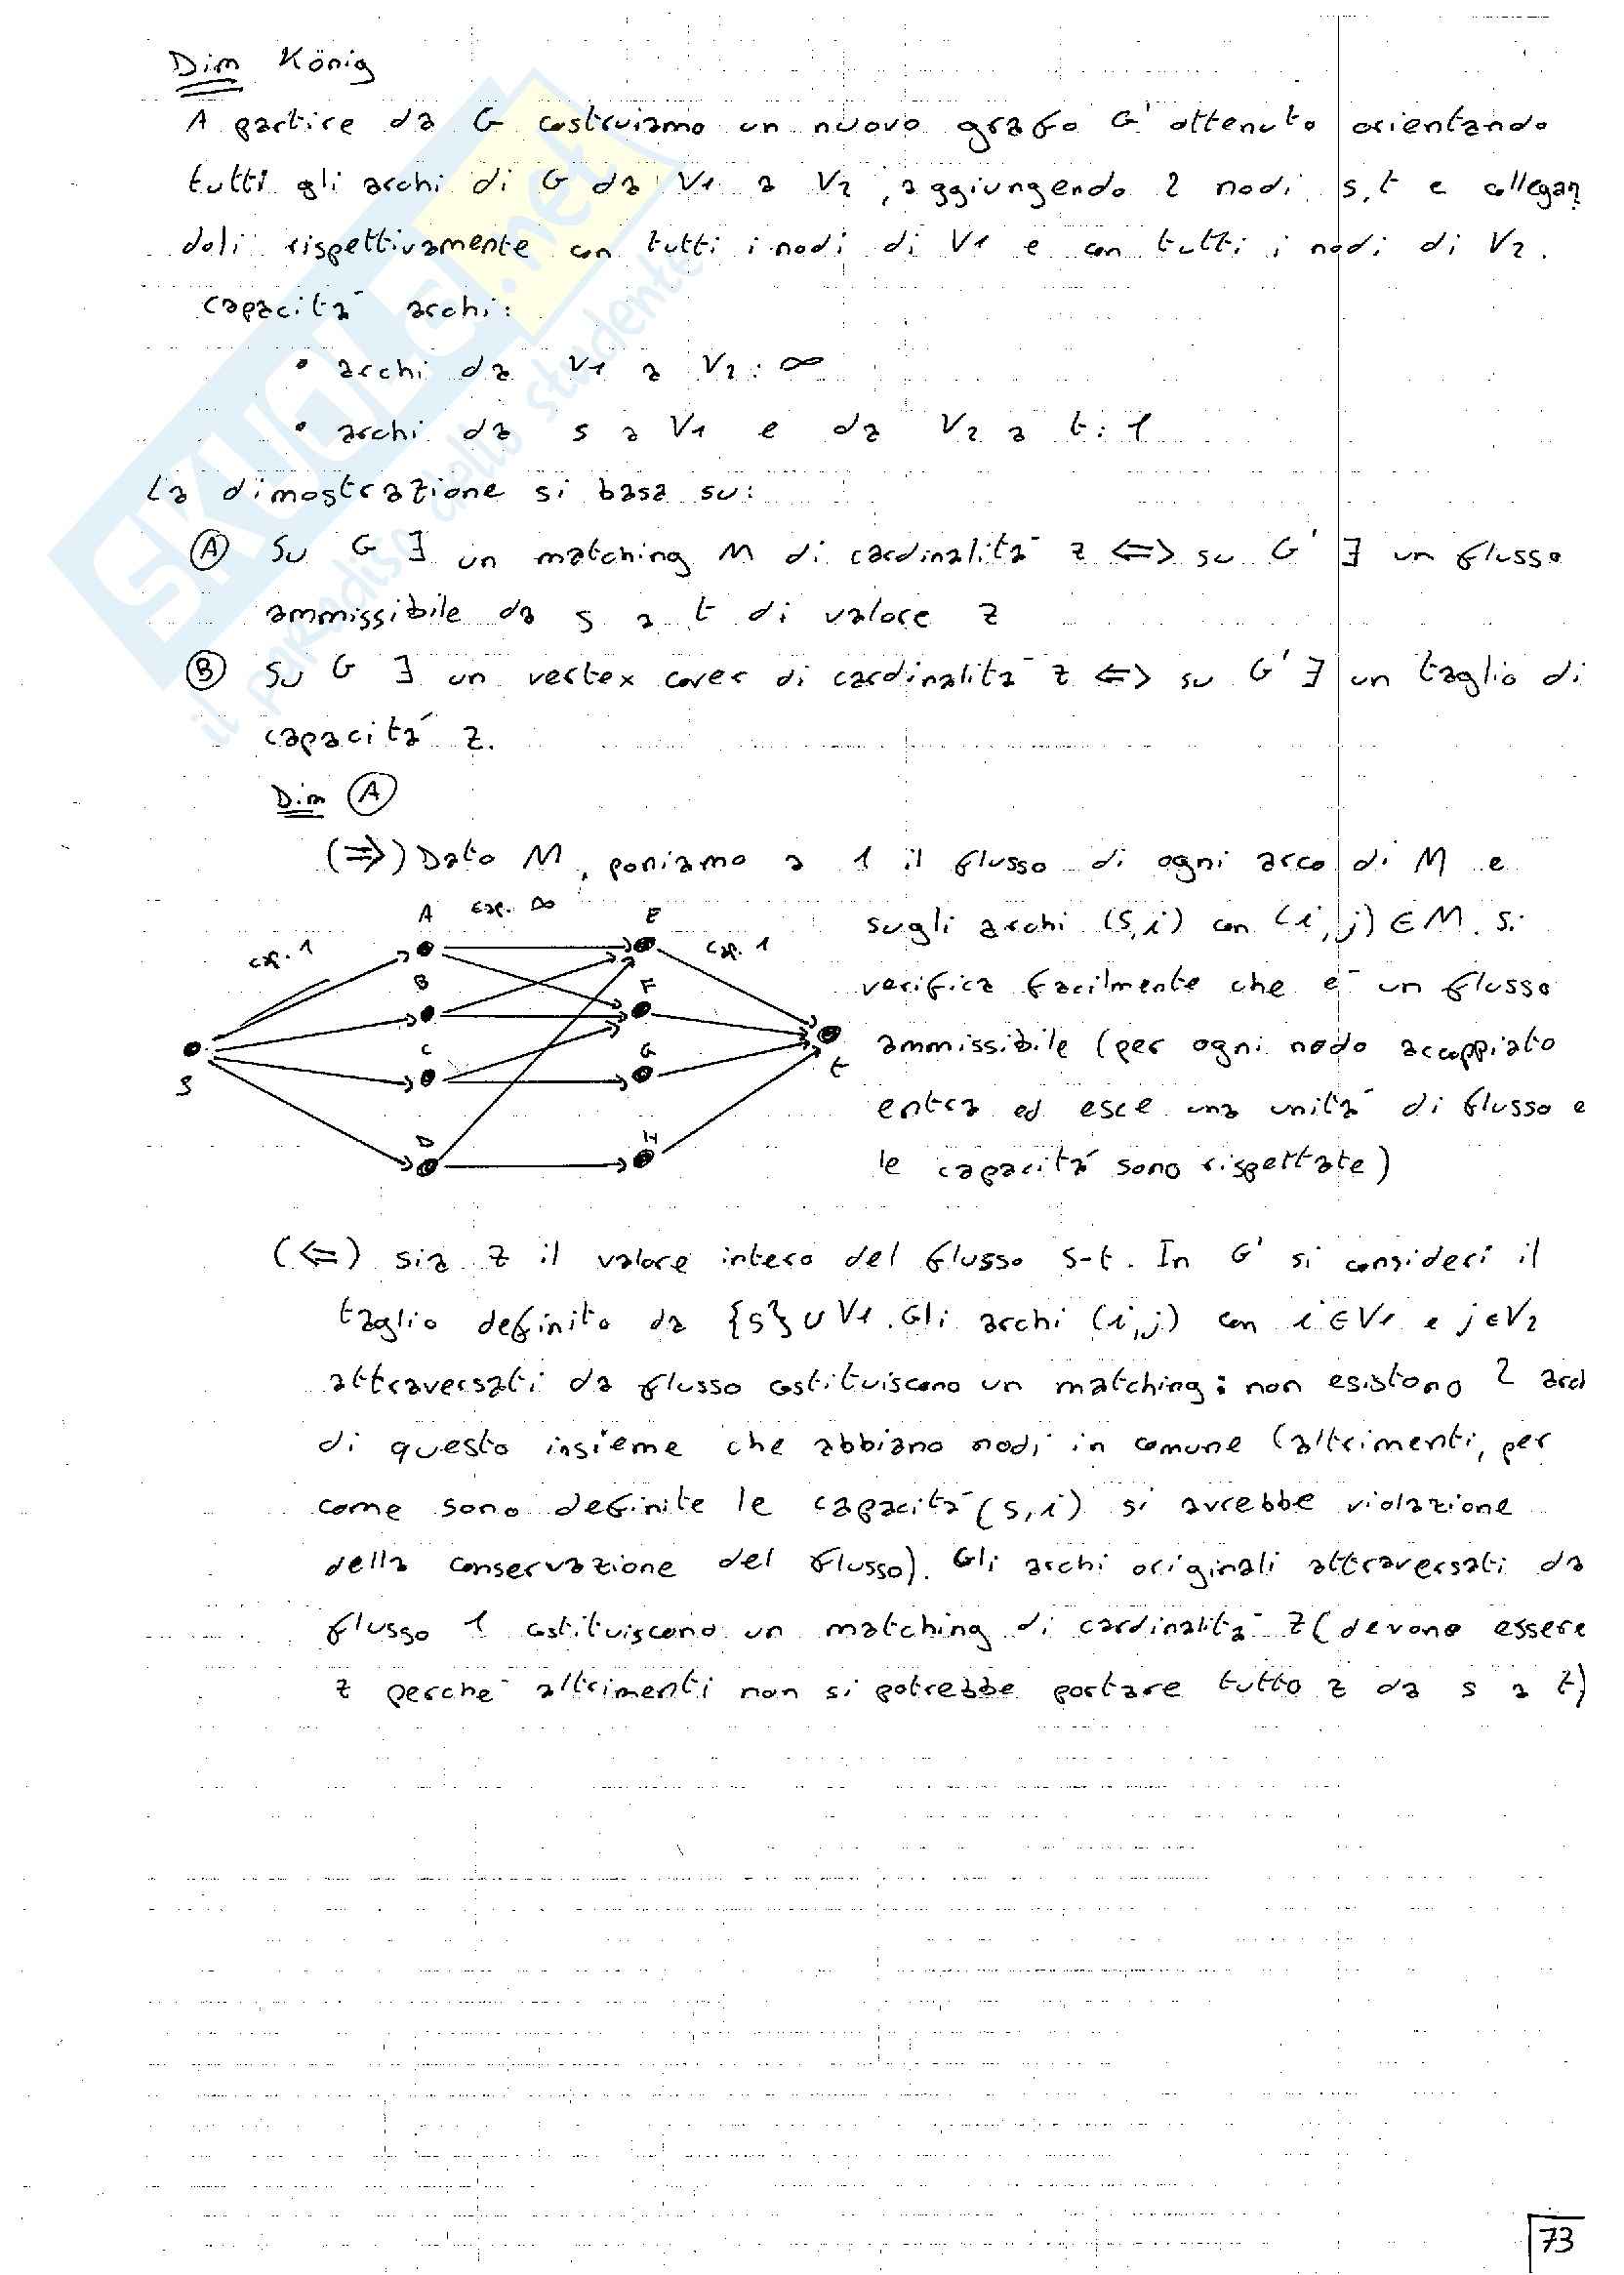 Dim König
A partire da G costruiamo un nuovo grafo G' ottenuto orientando
tutti gli archi di G da V1 a V2, aggiungendo 2 nodi s,t e collegan
doli rispettivamente con tutti i nodi di V1 e con tutti i nodi di V2.
capacità archi:
• archi da V1 a V2: ∞
• archi da s a V1 e da V2 a t: 1
La dimostrazione si basa su:
Ⓐ Su G ∃ un matching M di cardinalità z ⟺ su G' ∃ un flusso
ammissibile da s a t di valore z
Ⓑ Su G ∃ un vertex cover di cardinalità z ⟺ su G' ∃ un taglio di
capacità z.
Dim Ⓐ
(⇒) Dato M, poniamo a 1 il flusso di ogni arco di M e
sugli archi (s,i) con (i,j) ∈ M. Si
verifica facilmente che è un flusso
ammissibile (per ogni nodo accoppiato
entra ed esce una unità di flusso e
le capacità sono rispettate)
cap. 1
A
cap. ∞
E
cap. 1
B
F
S
C
G
t
D
H
(⇐) sia z il valore intero del flusso s-t. In G' si consideri il
taglio definito da {s} ∪ V1. Gli archi (i,j) con i ∈ V1 e j ∈ V2
attraversati da flusso costituiscono un matching: non esistono 2 arch
di questo insieme che abbiano nodi in comune (altrimenti, per
come sono definite le capacità (s,i) si avrebbe violazione
della conservazione del flusso). Gli archi originali attraversati da
flusso 1 costituiscono un matching di cardinalità z (devono essere
z perché altrimenti non si potrebbe portare tutto z da s a t)
73
SKUOLA.net
il paradiso dello studente